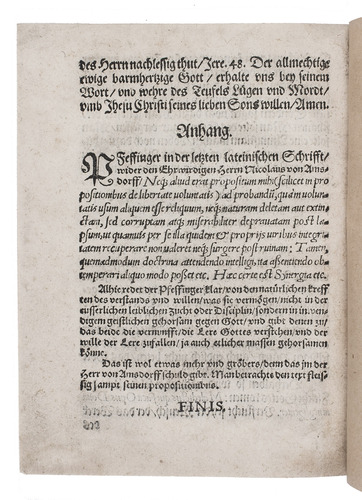 des Herrn nachlessig thut/ Jere. 48. Der allmechtige
ewige barmhertzige Gott/ erhalte vns bey seinem
Wort/ vnd wehre des Teufels Lügen vnd Mordt/
vmb Jhesu Christi seines lieben Sons willen/ Amen.
Anhang.
PFeffinger in der letzten lateinischen Schrifft/
wider den Ehrwirdigen Herrn Nicolaus von Ams
dorff/ Neq; aliud erat propositum mihi (scilicet in pro
positionibus de libertate voluntatis) ad probandũ, quàm volun
tatis usum aliquem esse reliquum, neq; naturam deletam aut extin
ctam, sed corruptam atq; miserabiliter depravatam post la
psum, ut quamuis per se illa quidem & proprijs uiribus integri
tatem recuperare non ualeret neq; surgere post ruinam: Tamen,
quemadmodum doctrina attendendo intelligi, ita assentiendo ob
temperari aliquo modo posset etc. Hæc certe est Synergia etc.
Alhie redet der Pfeffinger klar/ von den natürlichen kreff
ten des verstands vnd willen/ was sie vermögen/ nicht in der
eusserlichen leiblichen Zucht oder Disciplin/ sondern in inwen
digem geistlichen gehorsam gegen Gott/ vnd gibt denen zu/
das beide die vernunfft/ die Lere Gottes verstehen/ vnd der
wille der Lere zufallen/ ja auch etlicher massen gehorsamen
könne.
Das ist wol etwas mehr vnd gröbers/ denn das jm der
Herr von Amsdorff schuld gibt. Man betrachte den text fleis
sig sampt seinen propositionibus.
FINIS.